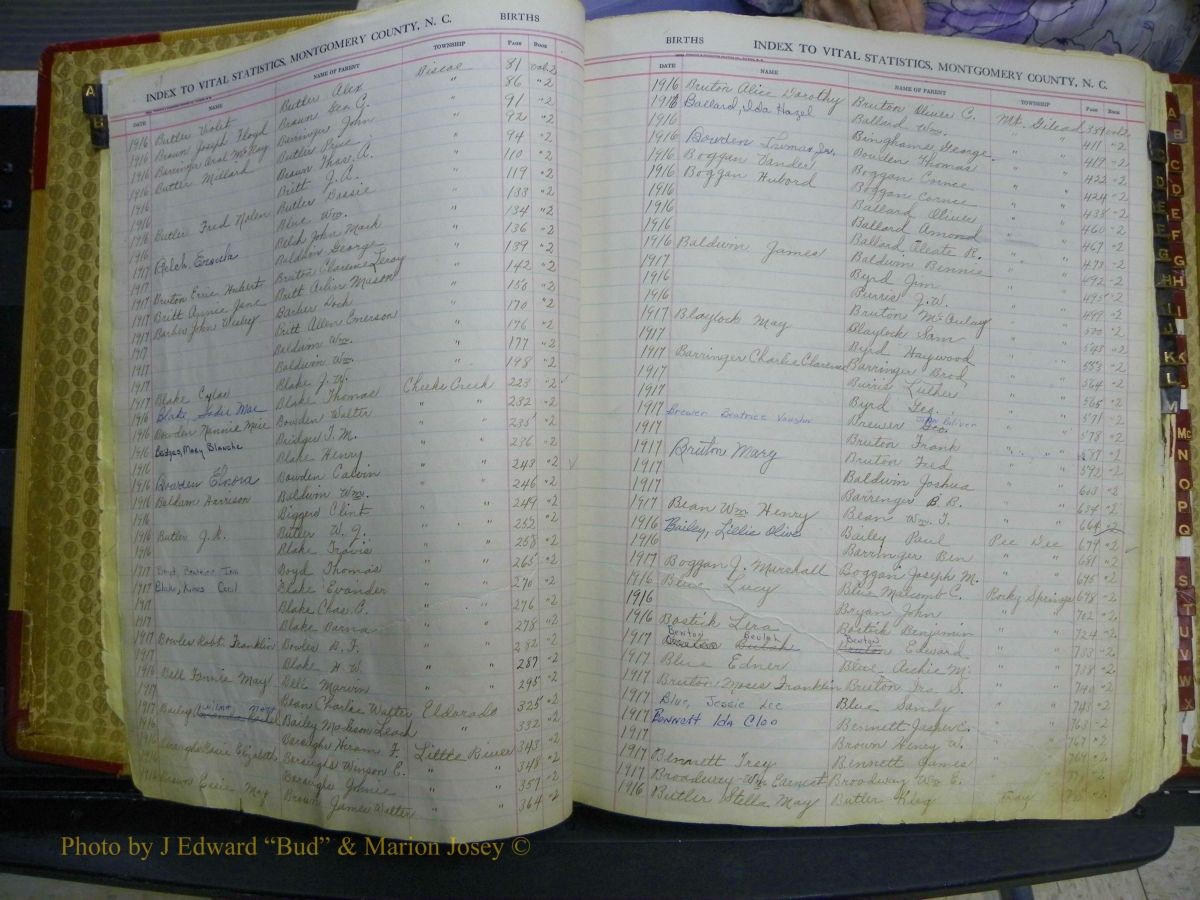 INDEX TO VITAL STATISTICS, MONTGOMERY COUNTY, N. C. BIRTHS
DATE NAME NAME OF PARENT TOWNSHIP PAGE BOOK
1916 Butler Violet Butler Alex Biscoe 81 vol 2
1916 Brown Joseph Floyd Brown Geo C. " 86 "2
1916 Barringer Oral McKay Barringer John " 91 "2
1916 Butler Millard Butler Price " 92 "2
1916 Brown Thos. A. " 94 "2
1916 Britt J. A. " 110 "2
1916 Butler Fred Nolen Butler " 119 "2
1916 Blue Wm. " 133 "2
1917 Balch, Ersula Balch John Mack " 134 "2
1917 Baldwin George " 136 "2
1917 Bruton Ernie Hubert Bruton Clarence Leroy " 139 "2
1917 Britt Annie Jane Britt Arlin Mason " 142 "2
1917 Barber John Wesley Barber Dock " 156 "2
1917 Britt Allen Emerson " 170 "2
1917 Baldwin Wm. " 176 "2
1917 Baldwin Wm. " 177 "2
1917 Blake J. W. " 198 "2
1917 Blake Blake Thomas Cheeks Creek 223 "2
1916 Blake, Sadie Mae " " 232 "2
1916 Bowden Nannie Marie Bowden Walter " " 235 "2
1916 Bridges, Mary Blanche Bridges T. M. " " 236 "2
1916 Blake Henry " " 243 "2
1916 Bowden Elnora Bowden Calvin " " 246 "2
1916 Baldwin Harrison Baldwin Wm. " " 249 "2
1916 Biggers Clint " " 252 "2
1916 Butler J. R. Butler W. J. " " 258 "2
1916 Blake Travis " " 265 "2
1917 Boyd, Beatrice Boyd Thomas " " 270 "2
1917 Blake, Cecil Blake Evander " " 276 "2
1917 Blake Chas. C. " " 278 "2
1917 Blake Barna " " 282 "2
1917 Bowles Robt. Franklin Bowles D. F. " " 287 "2
1917 Blake H. W. " " 295 "2
1916 Bell Fannie May Bell Marvin
1917 Bean Charlie Walter Eldorado 325 "2
Bailey Wilma Mary Bailey Madison Leach " 332 "2
1916 Boroughs Hiram F. Little River 343 "2
Boroughs Elizabeth Boroughs Winson C. " " 348 "2
Boroughs " " 357 "2
Brown Essie May Brown James Walter " " 364 "2
BIRTHS INDEX TO VITAL STATISTICS, MONTGOMERY COUNTY, N. C.
DATE NAME NAME OF PARENT TOWNSHIP PAGE BOOK
1916 Bruton Alice Dorothy Bruton Oliver C. Mt. Gilead 389 vol 2
1916 Ballard, Ida Hazel Ballard Wm. " " 411 "2
1916 Bingham George " " 417 "2
1916 Bowden Thomas Jr. Bowden Thomas " " 422 "2
1916 Boggan Vander Boggan Cornce " " 424 "2
1916 Boggan Hubord Boggan Cornce " " 438 "2
1916 Ballard Oliver " " 460 "2
1916 Ballard Amond " " 467 "2
1916 Ballard Cleate R. " " 473 "2
1916 Baldwin James Baldwin Bennie " " 492 "2
1917 Byrd Jim " " 495 "2
1916 Burris J. W. " " 499 "2
1916 Bruton McCauley " " 520 "2
1917 Blaylock May Blaylock Sam " " 543 "2
1917 Byrd Haywood " " 553 "2
1917 Barringer Charlie Clarence Barringer Brod " " 564 "2
1917 Burris Luther " " 565 "2
1917 Byrd Geo. " " 571 "2
1917 Brewer Beatrice Vaughn Brewer " " 578 "2
1917 Bruton Frank " " 587 "2
1917 Bruton Mary Bruton Fred " " 592 "2
1917 Baldwin Joshua " " 603 "2
1917 Barringer B. B. " " 634 "2
1917 Bean Wm. Henry Bean Wm. T. " " 664 "2
1916 Bailey, Lillie Olive Bailey Paul Pee Dee 679 "2
1916 Barringer Ben " " 681 "2
1917 Boggan J. Marshall Boggan Joseph M. " " 695 "2
1916 Blue Lucy Blue Malcomb C. Rocky Springs 698 "2
1916 Bryan John " " 702 "2
1916 Bostick Lera Bostick Benjamin " " 724 "2
1917 Benton Beulah Benton Edward " " 733 "2
1917 Blue Edner Blue Archie M. " " 738 "2
1917 Bruton Moses Franklin Bruton Ira S. " " 740 "2
1917 Blue, Jessie Lee Blue Sandy " " 743 "2
1917 Bennett Ida Cleo Bennett Jasper C. " " 763 "2
1917 Brown Henry W. " " 767 "2
1917 Bennett Troy Bennett James " " 769 "2
1917 Broadway Wm Earnest Broadway Wm E. " "
1916 Butler Stella May Butler King Troy
A B C D E F G H I J K L M Mc N O P Q R S T U V W X
Photo by J Edward "Bud" & Marion Josey ©